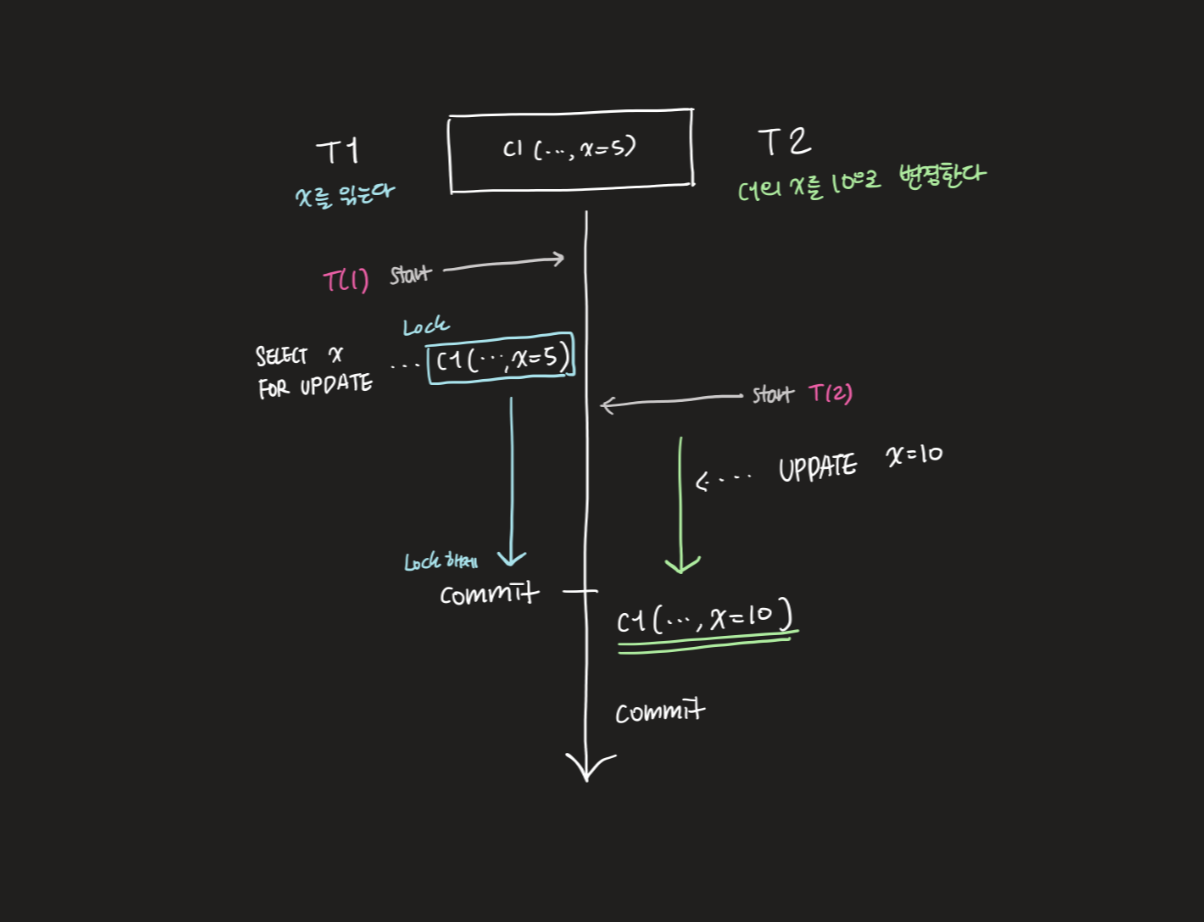 T1
C1 (..., x=5)
T2
x를 읽는다
C1의 x를 10으로 변경한다
T(1) start
Lock
SELECT x
FOR UPDATE
... C1(...,x=5)
start T(2)
<.... UPDATE x=10
Lock 해제
commit
C1(...,x=10)
commit